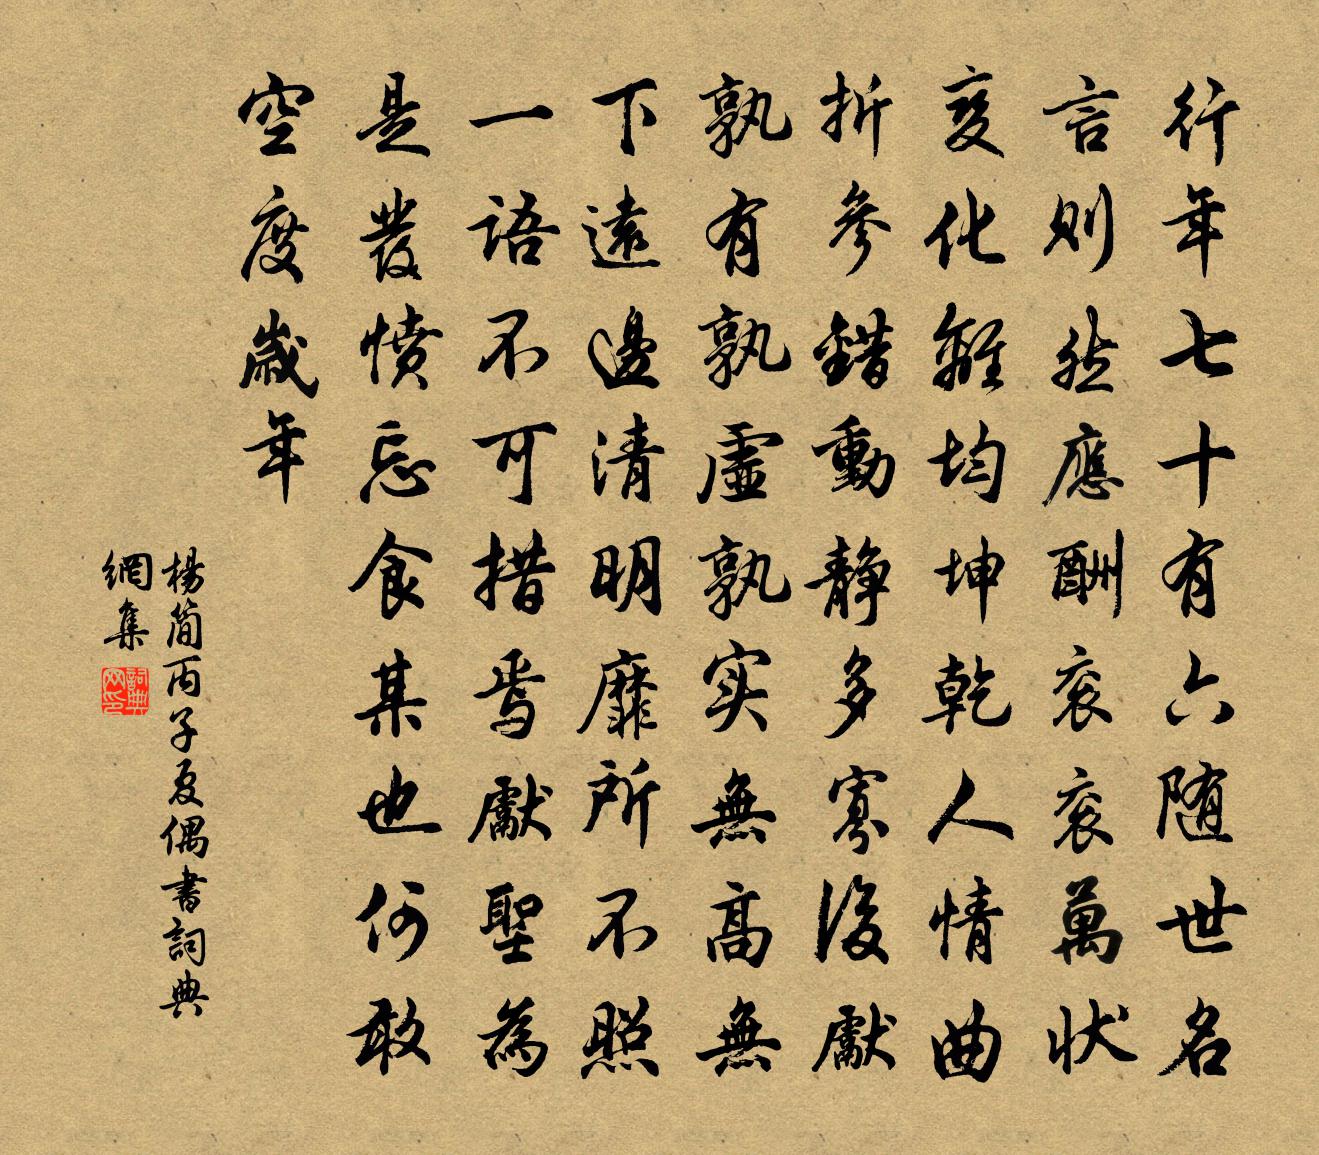 行年七十有六随世名
言则然應酬衮衮萬状
变化雖均坤乾人情曲
折參錯動静多寡後獻
孰有孰虚孰实無高無
下遠邊清明靡所不照
一語不可措焉獻聖為
是發憤忘食某也何敢
空度歲年
楊簡丙子夏偶書詞典
網集
詞典网印